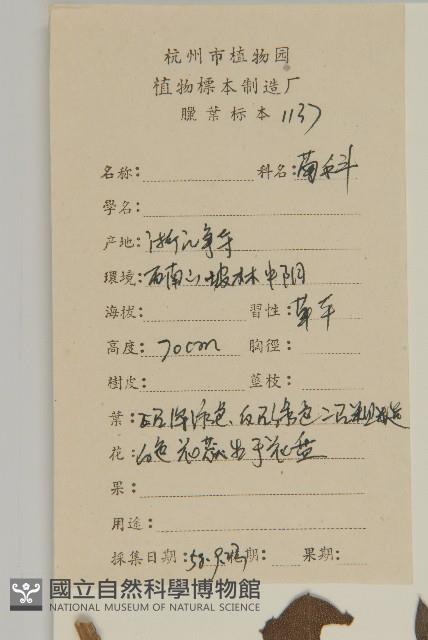 杭州市植物园
植物標本制造厂
臘葉标本 1137
名称: 科名: 菊科
學名:
产地:
環境: 西南山坡林半阴
海拔: 習性: 草本
高度: 70cm 胸徑:
樹皮: 莖枝:
葉:
花: 白色
果:
用途:
採集日期: 花期: 果期:
國立自然科學博物館
NATIONAL MUSEUM OF NATURAL SCIENCE